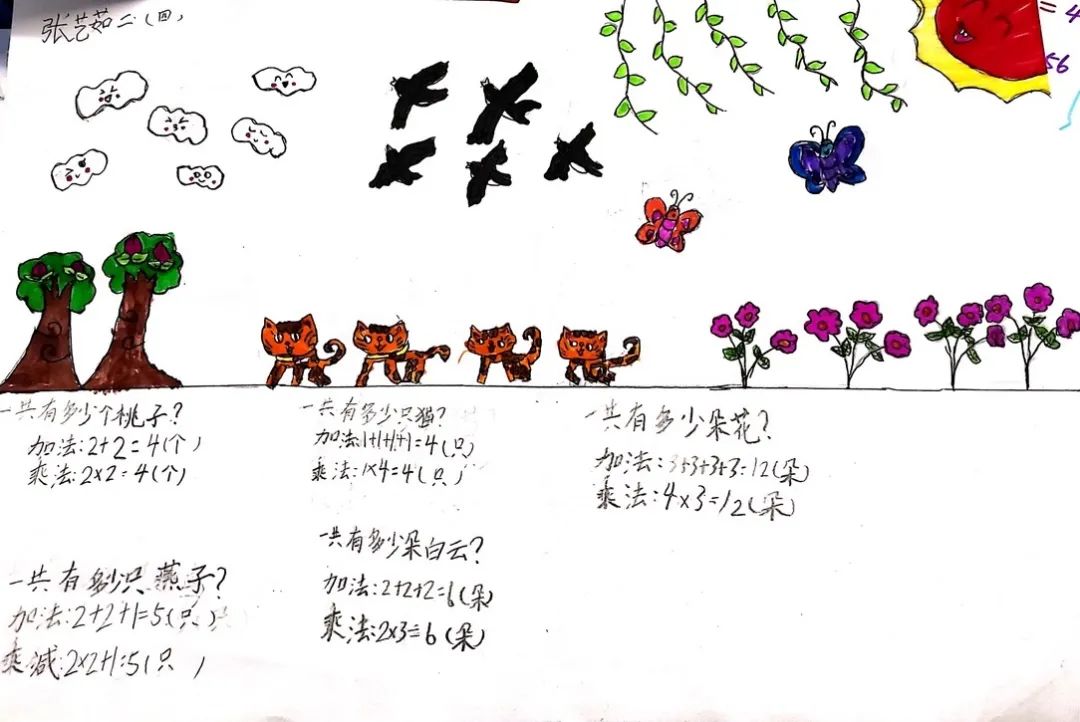 张艺茹二(四)
= 4
56
一共有多少个桃子?
加法:2+2=4(个)
乘法:2×2=4(个)
一共有多少只猫?
加法:1+1+1+1=4(只)
乘法:1×4=4(只)
一共有多少朵花?
加法:3+3+3+3=12(朵)
乘法:4×3=12(朵)
一共有多少朵白云?
加法:2+2+2=6(朵)
乘法:2×3=6(朵)
一共有多少只燕子?
加法:2+2+1=5(只)
乘减:2×2+1=5(只)